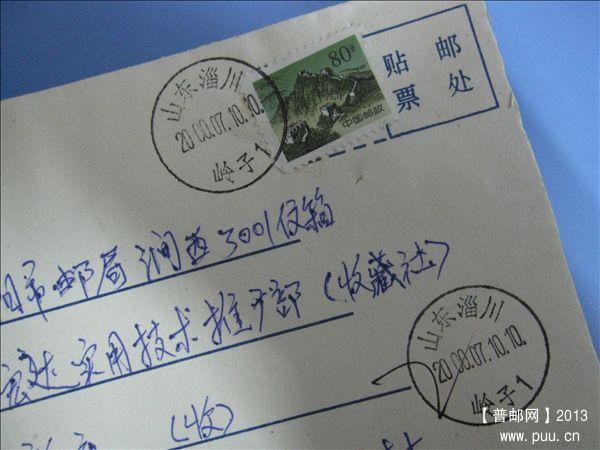 80分
中国邮政
贴 邮
票 处
山东淄川
2000.07.10.10.
岭子1
市邮局涧西3001信箱
宏达实用技术推广部(收藏社)
(收)
山东淄川
2000.07.10.10.
岭子1
【普邮网】2013
www.puu.cn